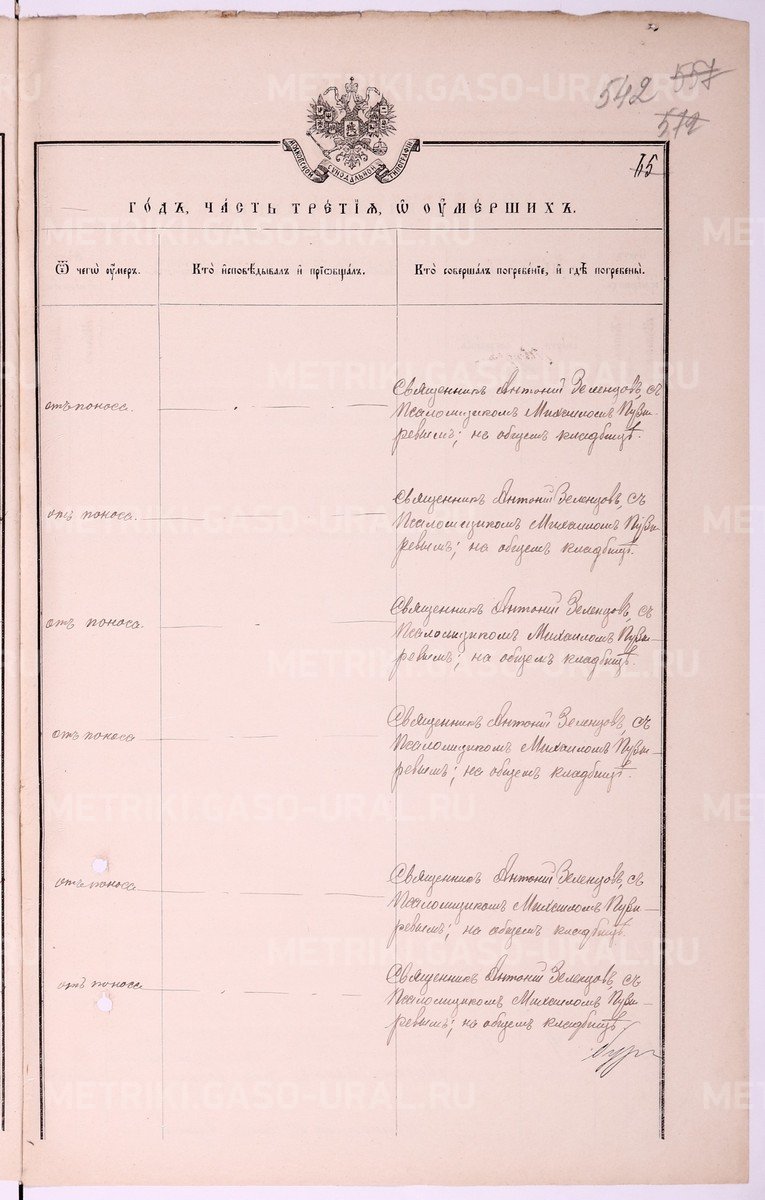 542 557
572
МОСКОВСКОЙ СѴНОДАЛЬНОЙ ТИПОГРАФІИ
45
ГО́ДЪ, ЧА́СТЬ ТРЕ́ТІѦ, Ѡ҆ ОУ҆МЕ́РШИХЪ.
Ѿ чегѡ̀ оу҆́меръ.
Кто̀ и҆сповѣ́дывалъ и҆ прїѡбща́лъ.
Кто̀ соверша́лъ погребе́нїе, и҆ гдѣ̀ погребены̀.
отъ поноса.
Священникъ Антоній Зеленцовъ, съ
Псаломщикомъ Михаиломъ Пузы-
ревымъ; на общемъ кладбищѣ.
отъ поноса.
Священникъ Антоній Зеленцовъ, съ
Псаломщикомъ Михаиломъ Пузы-
ревымъ; на общемъ кладбищѣ.
отъ поноса.
Священникъ Антоній Зеленцовъ, съ
Псаломщикомъ Михаиломъ Пузы-
ревымъ; на общемъ кладбищѣ.
отъ поноса
Священникъ Антоній Зеленцовъ, съ
Псаломщикомъ Михаиломъ Пузы-
ревымъ; на общемъ кладбищѣ.
отъ поноса
Священникъ Антоній Зеленцовъ, съ
Псаломщикомъ Михаиломъ Пузы-
ревымъ; на общемъ кладбищѣ.
отъ поноса
Священникъ Антоній Зеленцовъ, съ
Псаломщикомъ Михаиломъ Пузы-
ревымъ; на общемъ кладбищѣ.
METRIKI.GASO-URAL.RU